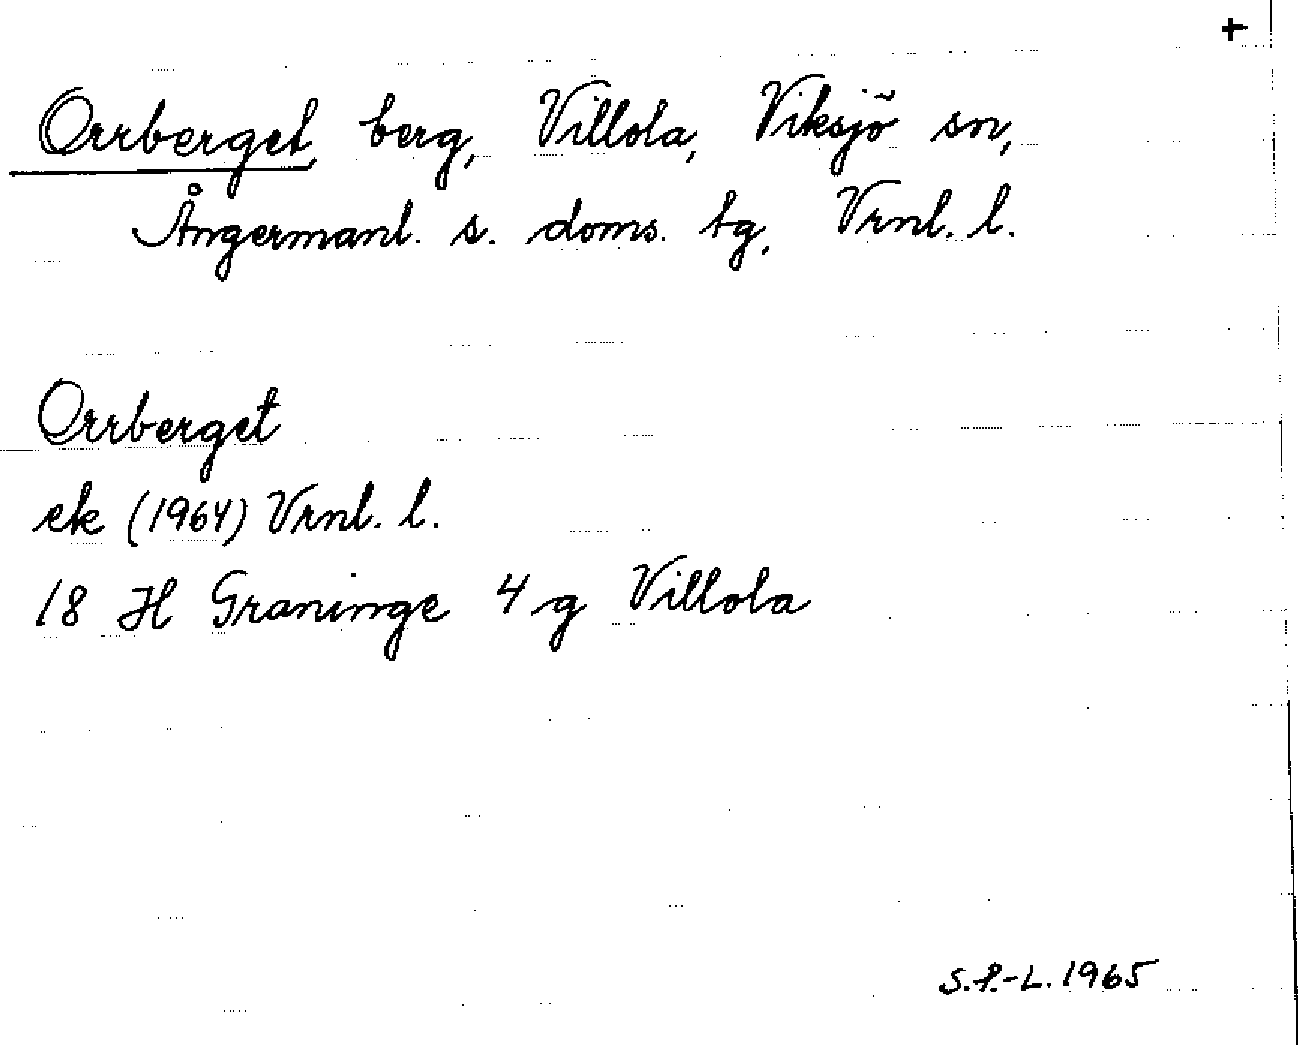 +
Orrberget, berg, Villola, Viksjö sn,
Ångermanl. s. doms. tg, Vrnl. l.
Orrberget
ek (1964) Vrnl. l.
18 H Graninge 4 g Villola
S.P.-L. 1965